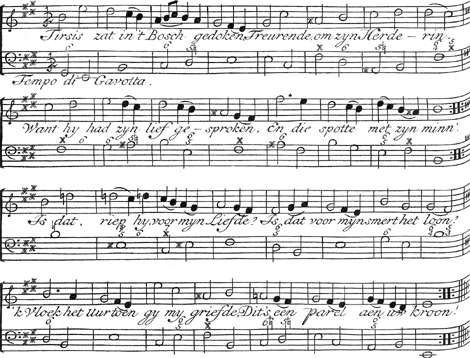 Tirsis zat in't Bosch gedoken, Treurende, om zyn Herde - rin:
Tempo di Gavotta.
Want hy had zyn lief ge - sproken, En die spotte met zyn minn'.
Is dat, riep hy, voor myn Liefde? Is dat voor myn smert het loon?
k'Vloek het uur toen gy my griefde, Dit's een parel aen uw kroon!